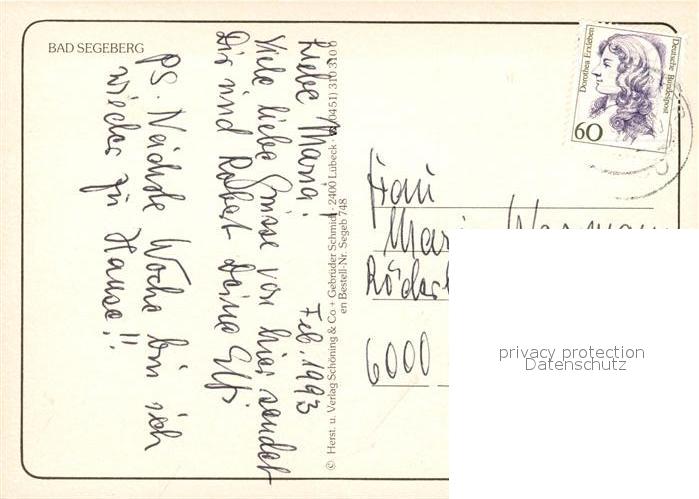 BAD SEGEBERG
Liebe Maria! Feb. 1993
Viele liebe Grüsse von hier sendet
Dir und Robert Deine Elfi
PS. Nächste Woche bin ich
wieder zu Hause!!
© Herst. u. Verlag Schöning & Co. + Gebrüder Schmidt · 2400 Lübeck · (0451) 310 310
en Bestell-Nr. Segeb 748
Dorothea Erxleben
Deutsche Bundespost
60
Frau
6000
privacy protection
Datenschutz